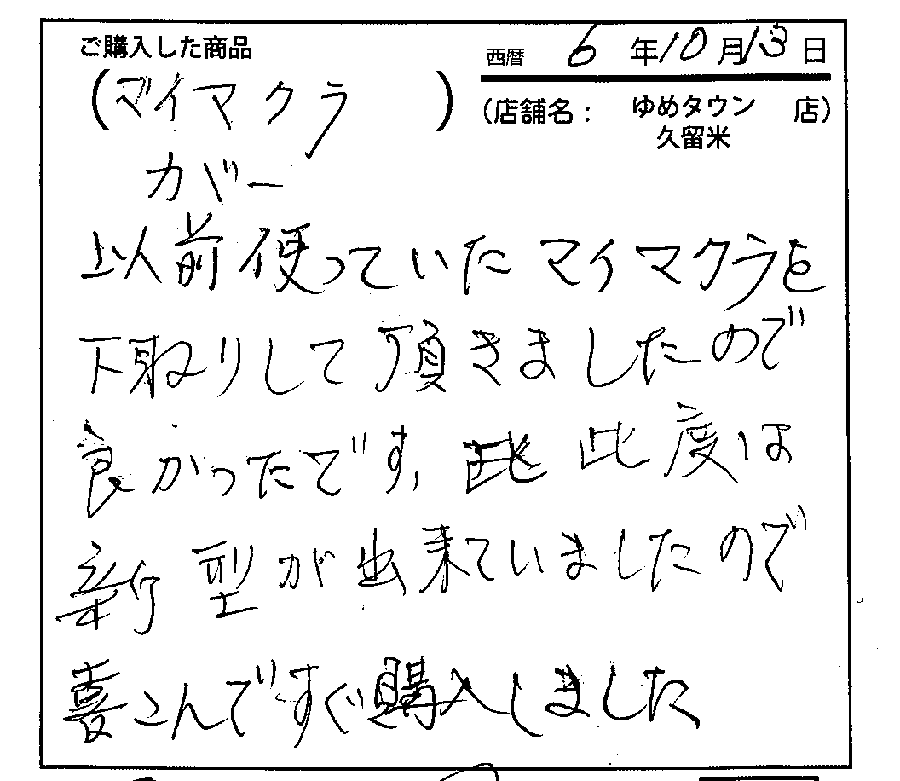 ご購入した商品
西暦 6 年 10 月 13 日
(マイマクラ
カバー)
(店舗名: ゆめタウン久留米 店)
以前使っていたマイマクラを
下取りして頂きましたので
良かったです、此度は
新型が出来ていましたので
喜こんですぐ購入しました